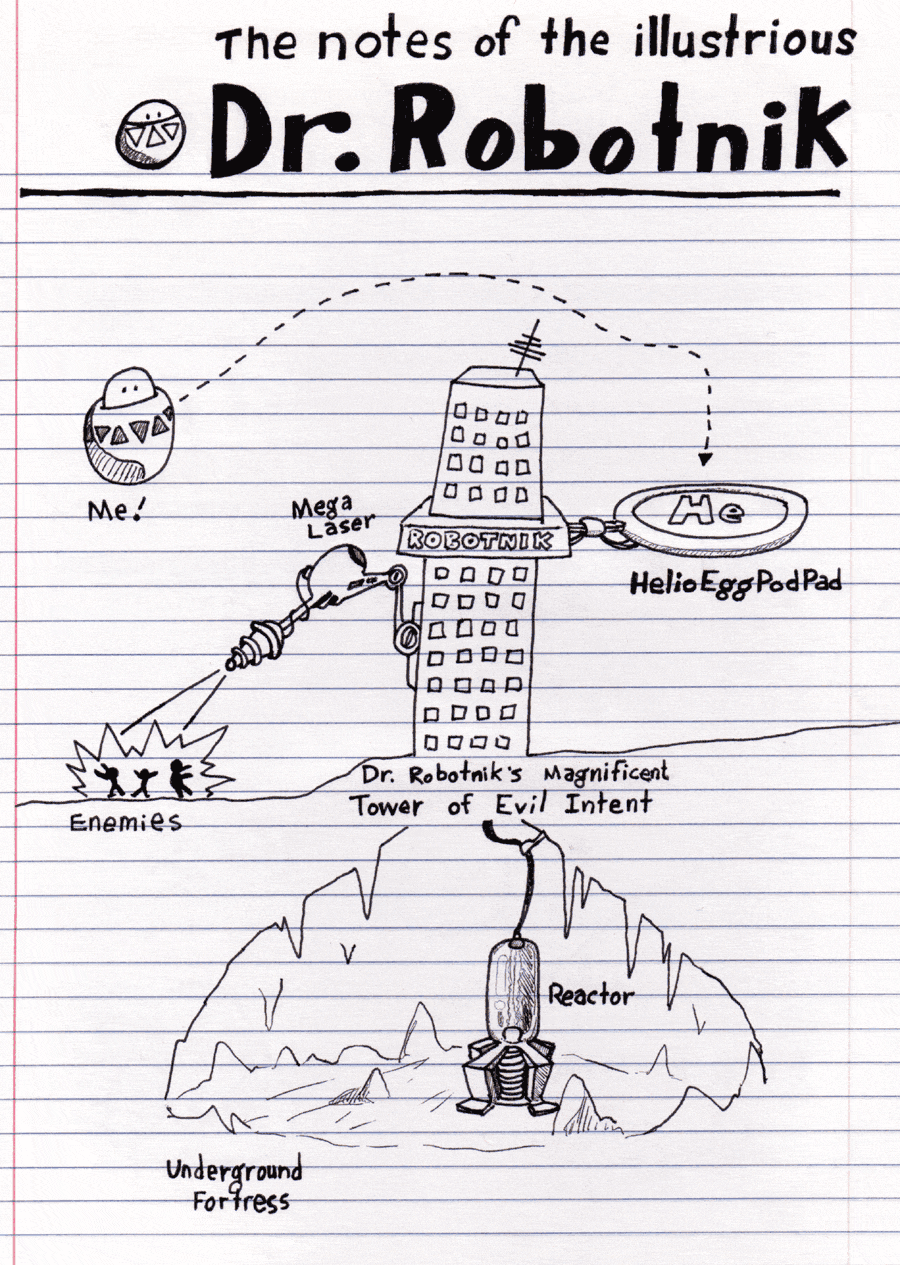 The notes of the illustrious
Dr. Robotnik
Me!
Mega
Laser
ROBOTNIK
He
HelioEggPodPad
Enemies
Dr. Robotnik's Magnificent
Tower of Evil Intent
Reactor
Underground
Fortress